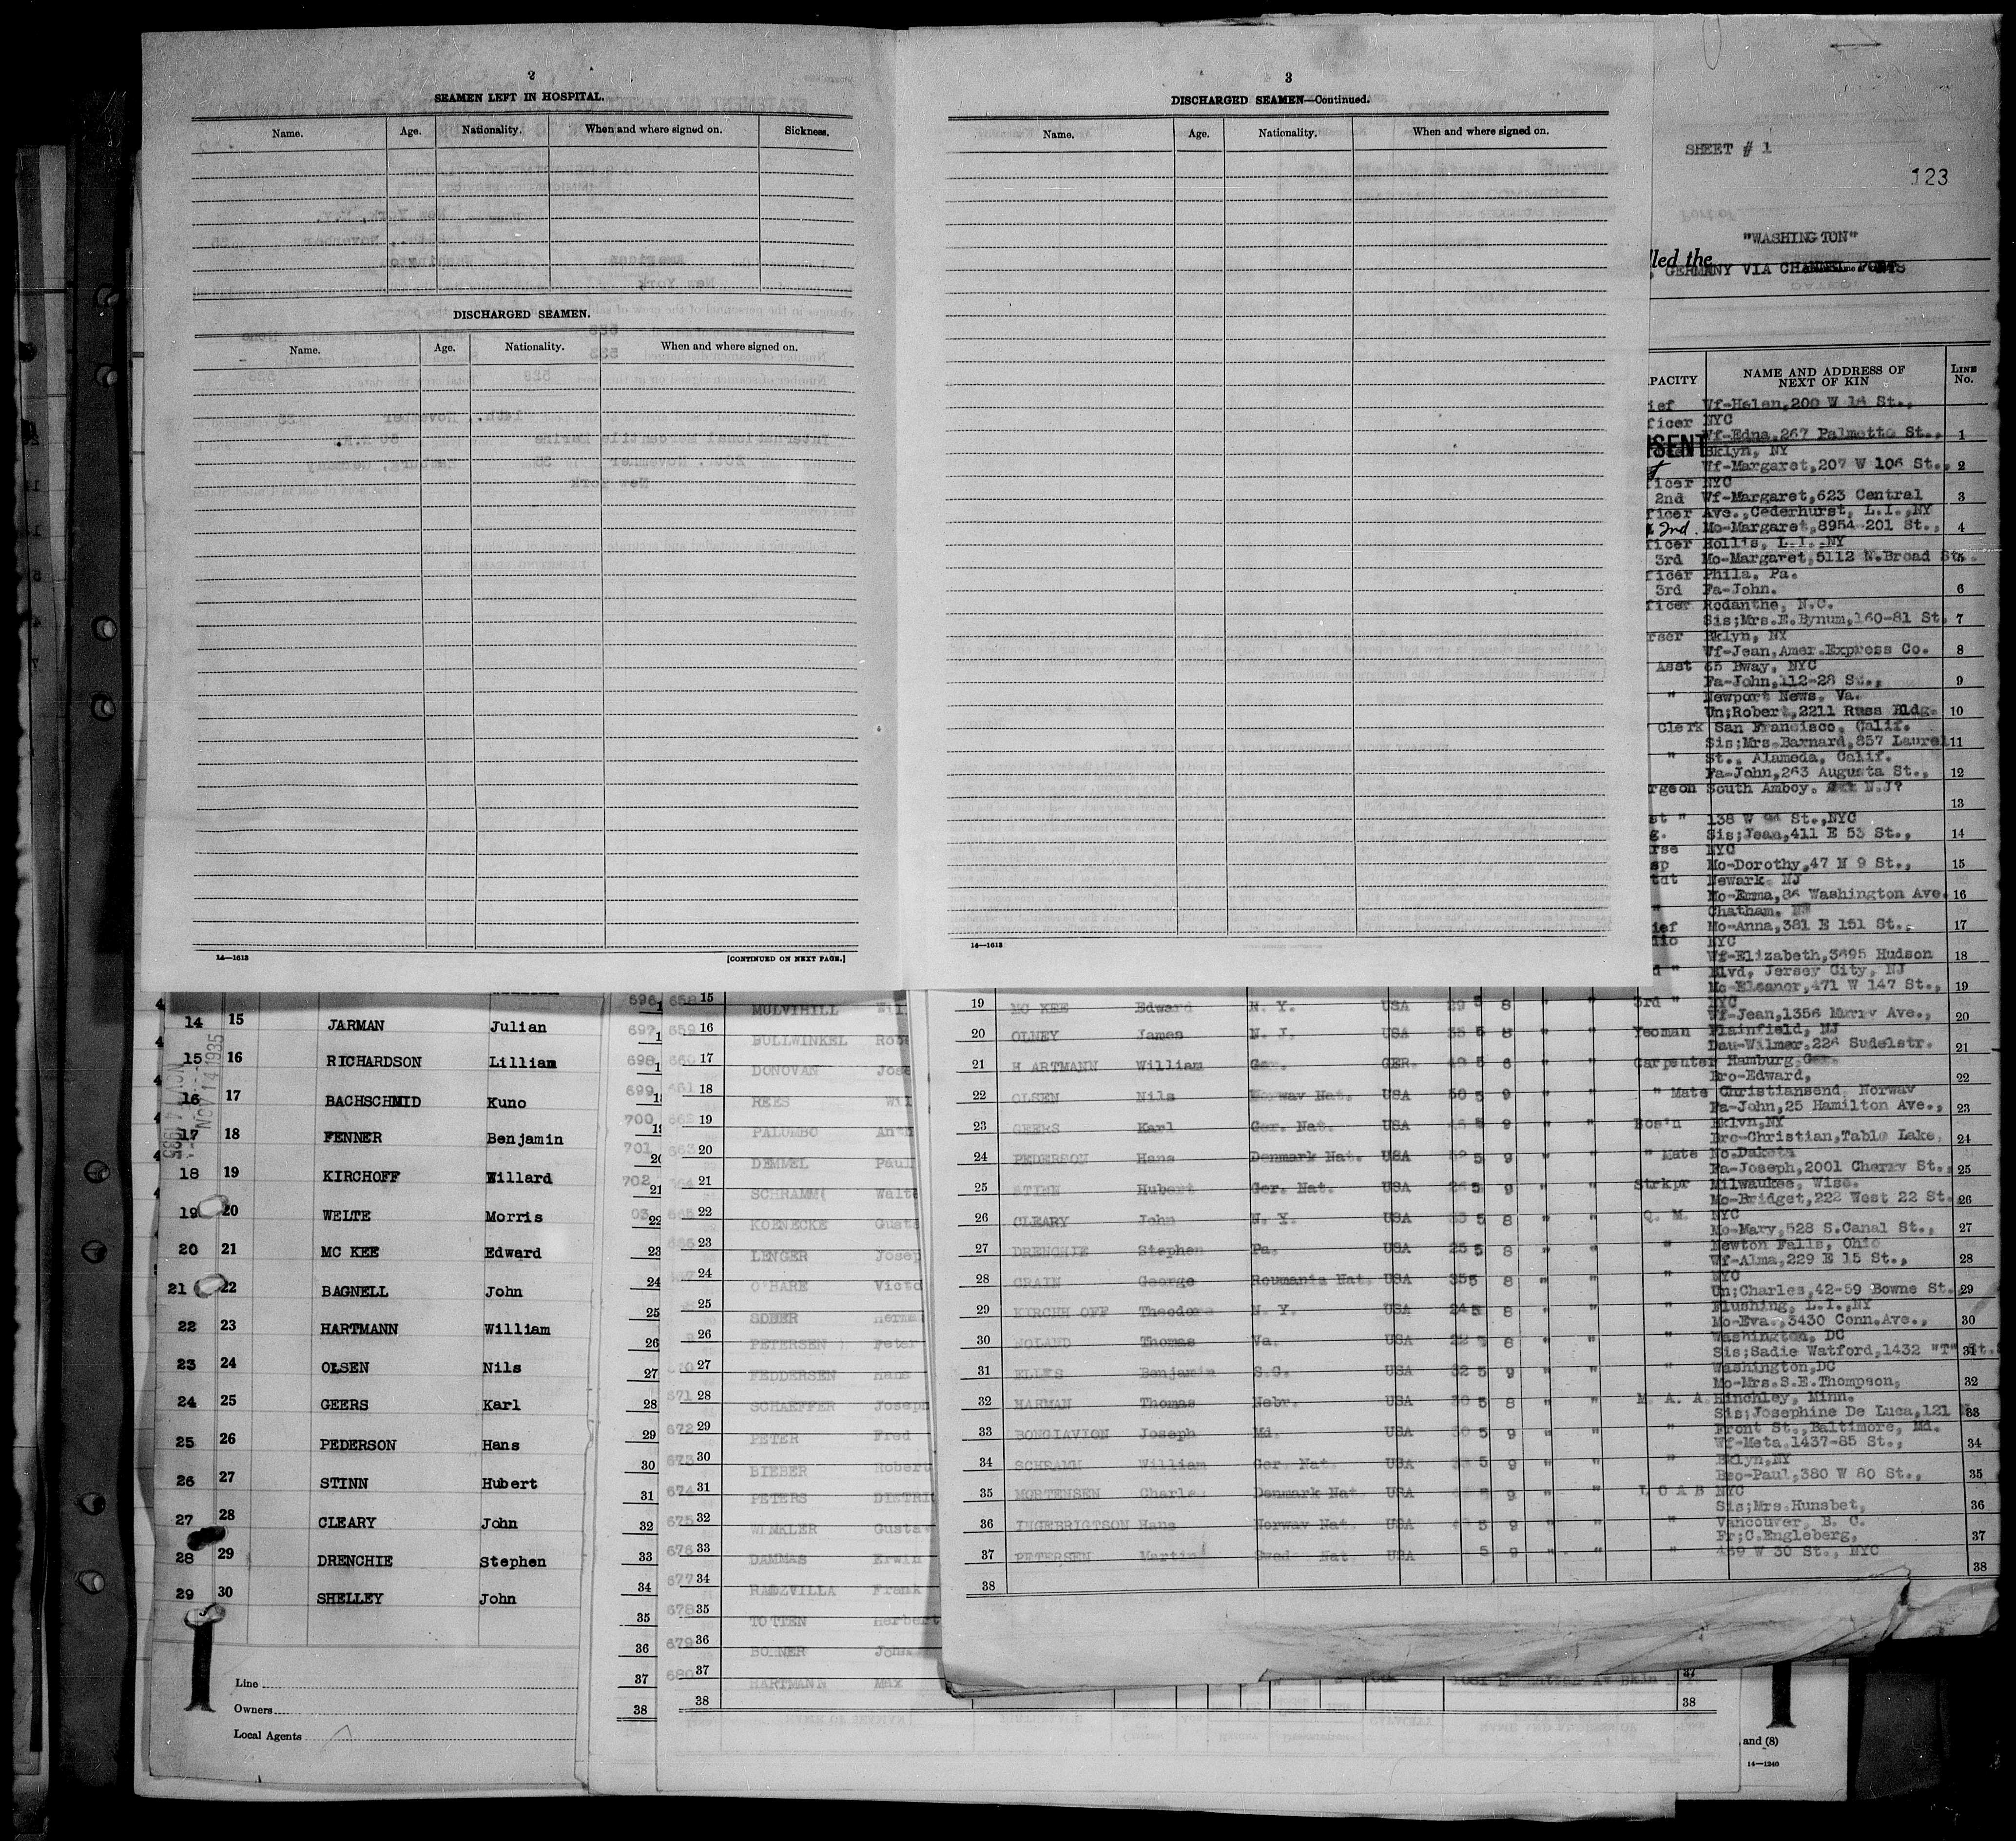 2
SEAMEN LEFT IN HOSPITAL.
Name. Age. Nationality. When and where signed on. Sickness.
DISCHARGED SEAMEN.
Name. Age. Nationality. When and where signed on.
14—1613 [CONTINUED ON NEXT PAGE.]
3
DISCHARGED SEAMEN—Continued.
Name. Age. Nationality. When and where signed on.
14—1613
SHEET # 1
123
"WASHINGTON"
lled the
, GERMANY VIA CHANNEL PORTS
PACITY NAME AND ADDRESS OF NEXT OF KIN LINE No.
ief Wf-Helen,200 W 16 St.,
ficer NYC
Wf-Edna,267 Palmetto St., 1
Bklyn, NY
Wf-Margaret,207 W 106 St., 2
ficer NYC
2nd Wf-Margaret,623 Central 3
ficer Ave.,Cederhurst, L.I.,NY
2nd Mo-Margaret,8954-201 St., 4
ficer Hollis, L.I.,NY
3rd Mo-Margaret,5112 N.Broad St. 5
ficer Phila. Pa.
3rd Fa-John. 6
ficer Rodanthe, N.C.
Sis;Mrs.E.Bynum,160-81 St. 7
rser Bklyn, NY
Wf-Jean,Amer.Express Co. 8
Asst 65 Bway, NYC
Fa-John,112-28 St., 9
" Newport News, Va.
Un;Robert,2211 Russ Bldg. 10
Clerk San Francisco, Calif.
Sis;Mrs.Barnard,857 Laurel 11
" St., Alameda, Calif.
Fa-John,263 Augusta St., 12
rgeon South Amboy. N.J?
13
st " 138 W St.,NYC
g. Sis;Jean,411 E 53 St., 14
rse NYC
sp Mo-Dorothy,47 N 9 St., 15
tdt Newark NJ
Mo-Emma,86 Washington Ave. 16
" Chatham. NJ
ief Mo-Anna,381 E 151 St., 17
dio NYC
Wf-Elizabeth,3695 Hudson 18
d " Blvd, Jersey City, NJ
Mo-Eleanor,471 W 147 St., 19
14 15 JARMAN Julian
15 16 RICHARDSON Lilliam
16 17 BACHSCHMID Kuno
17 18 FENNER Benjamin
18 19 KIRCHOFF Willard
19 20 WELTE Morris
20 21 MC KEE Edward
21 22 BAGNELL John
22 23 HARTMANN William
23 24 OLSEN Nils
24 25 GEERS Karl
25 26 PEDERSON Hans
26 27 STINN Hubert
27 28 CLEARY John
28 29 DRENCHIE Stephen
29 30 SHELLEY John
NOV 14 1935
Line
Owners
Local Agents
696 658 15 MULVIHILL Wil
697 659 16 BULLWINKEL Robe
698 660 17 DONOVAN Jose
699 661 18 REES Wil
700 662 19 PALUMBO Anth
701 663 20 DEMMEL Paul
702 21 SCHRAMM Walte
22 KOENECKE Gusta
23 23 LENGER Josep
24 24 O'HARE Victo
25 25 SOBER Herma
26 26 PETERSEN Peter
27 27 FEDDERSEN Hans
28 671 28 SCHAEFFER Joseph
29 672 29 PETER Fred
30 673 30 BIEBER Robert
31 674 31 PETERS DISTRI
32 675 32 WINKLER Gustav
33 676 33 DAMMAS Erwin
34 677 34 RADZVILLA Frank
35 678 35 TOTTEN Herbert
36 679 36 John
37 680 37 HARTMANN Max
38 38
19 MC KEE Edward N. Y. USA 29 5 8 " " 3rd " NYC
Wf-Jean,1356 Murry Ave., 20
20 OLNEY James N. J. USA 35 5 8 " " Yeoman Plainfield, NJ
Dau-Wilmer,226 Sudelstr. 21
21 HARTMANN William Ger. GER. 49 5 6 " " Carpenter Hamburg Ger.
Bro-Edward, 22
22 OLSEN Nils Norway Nat. USA 50 5 9 " " " Mate Christiansend, Norway
Fa-John,25 Hamilton Ave., 23
23 GEERS Karl Ger. Nat. USA 5 9 " " Bos'n Bklyn,NY
Bro-Christian,Table Lake, 24
24 PEDERSON Hans Denmark Nat. USA 5 9 " " " Mate No.Dakota
Fa-Joseph,2001 Cherry St., 25
25 STINN Hubert Ger. Nat. USA 26 5 9 " " Strkpr Milwaukee, Wisc.
Mo-Bridget,222 West 22 St. 26
26 CLEARY John N. Y. USA 33 5 8 " " Q. M. NYC
Mo-Mary,528 S.Canal St., 27
27 DRENCHIE Stephen Pa. USA 25 5 8 " " " Newton Falls, Ohio
Wf-Alma,229 E 15 St., 28
28 CRAIN George Roumania Nat. USA 35 5 8 " " " NYC
Un;Charles,42-59 Bowne St., 29
29 KIRCHHOFF Theodore N. Y. USA 24 5 8 " " " Flushing, L.I.,NY
Mo-Eva.,3430 Conn.Ave., 30
30 NOLAND Thomas Va. USA 22 8 " " " Washington, DC
Sis;Sadie Watford,1432 "T" St. 31
31 ELLES Benjamin S.C. USA 32 5 9 " " " Washington,DC
Mo-Mrs.S.E.Thompson, 32
32 HARMAN Thomas Nebr. USA 30 5 8 " " M. A. A. Hinchley, Minn.
Sis;Josephine De Luca,121 N. 33
33 BONGIAVION Joseph Md. USA 30 5 9 " " " Front St.,Baltimore, Md.
Wf-Meta,1437-85 St., 34
34 SCHRAMM William Ger. Nat. USA 5 9 " " " Bklyn,NY
Bro-Paul,380 W 80 St., 35
35 MORTENSEN Charles Denmark Nat USA 9 " " L O A B NYC
Sis;Mrs.Hunsbet, 36
36 INGEBRIGTSON Hans Norway Nat. USA 5 9 " " " Vancouver, B. C.
Fr;C.Engleberg, 37
37 PETERSEN Martin Swed. Nat USA 5 9 " " " 439 W 30 St., NYC
38 38
37
38
and (8)
14—1240